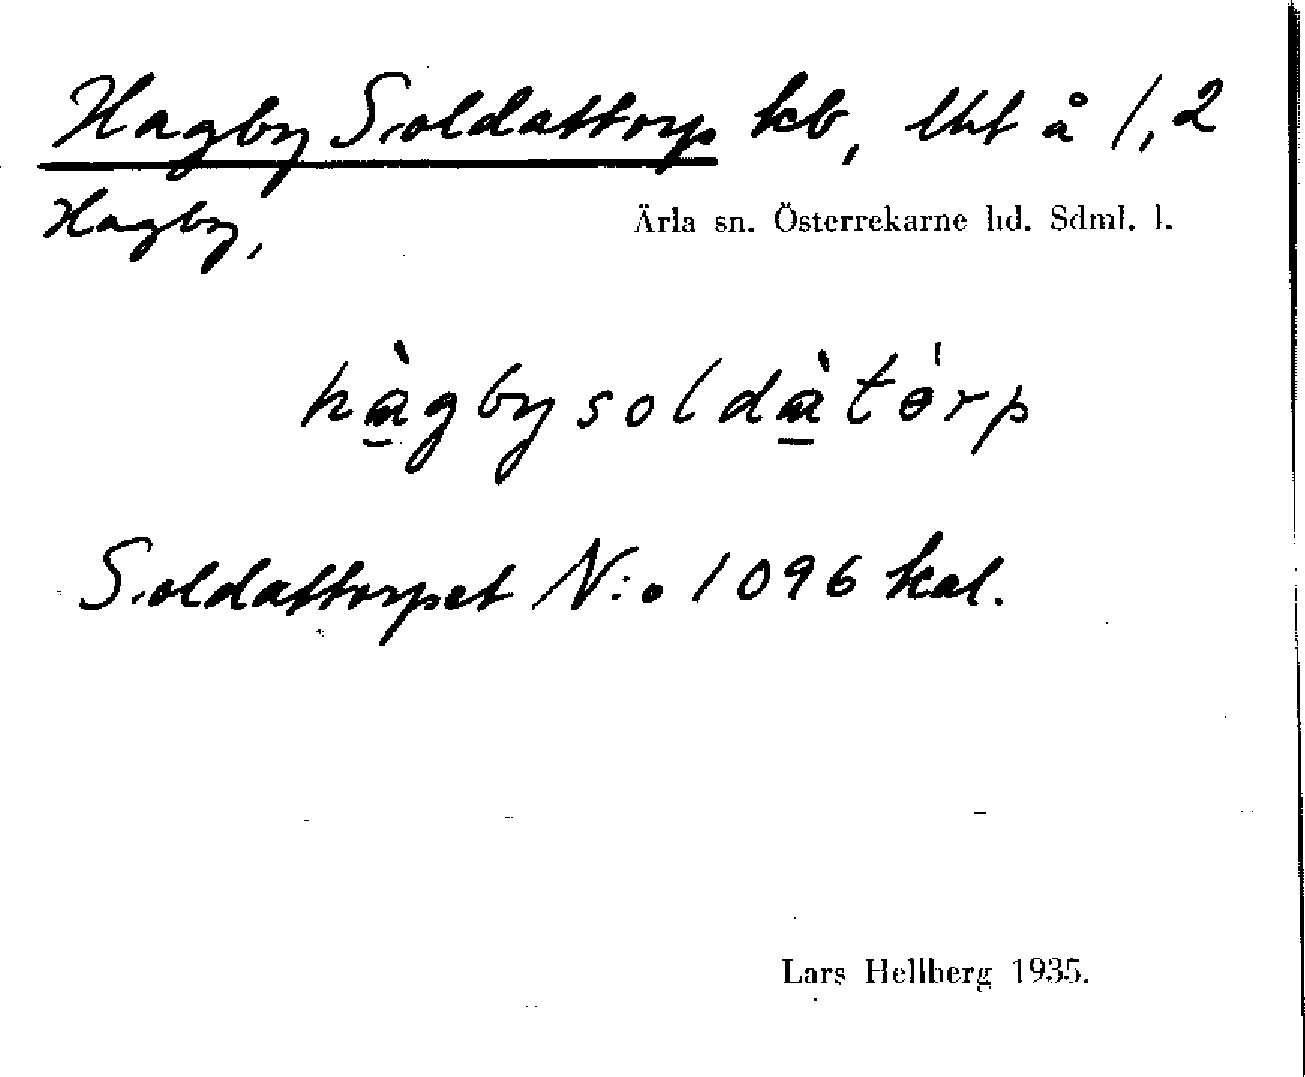 Hagby Soldattorp kb, lht å 1,2
Hagby,
Ärla sn. Österrekarne hd. Sdml. l.
hàgbysoldàtórp
Soldattorpet N:o 1096 kal.
Lars Hellberg 1935.